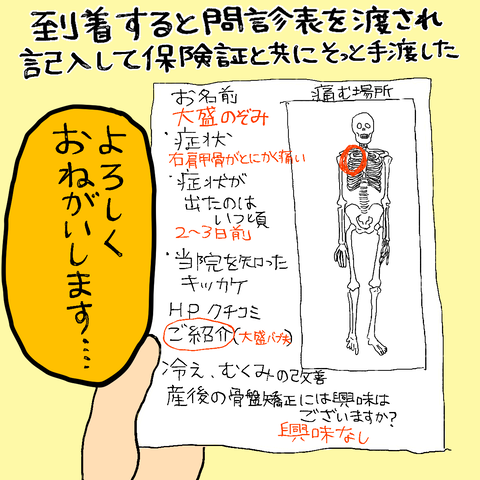 到着すると問診表を渡され
記入して保険証と共にそっと手渡した
よろしく
おねがいします…
お名前
大盛のぞみ
・症状
右肩甲骨がとにかく痛い
・症状が
出たのは
いつ頃
2〜3日前
・当院を知った
キッカケ
HP クチコミ
ご紹介(大盛パプ夫)
冷え、むくみの改善
産後の骨盤矯正には興味は
ございますか?
興味なし
痛む場所